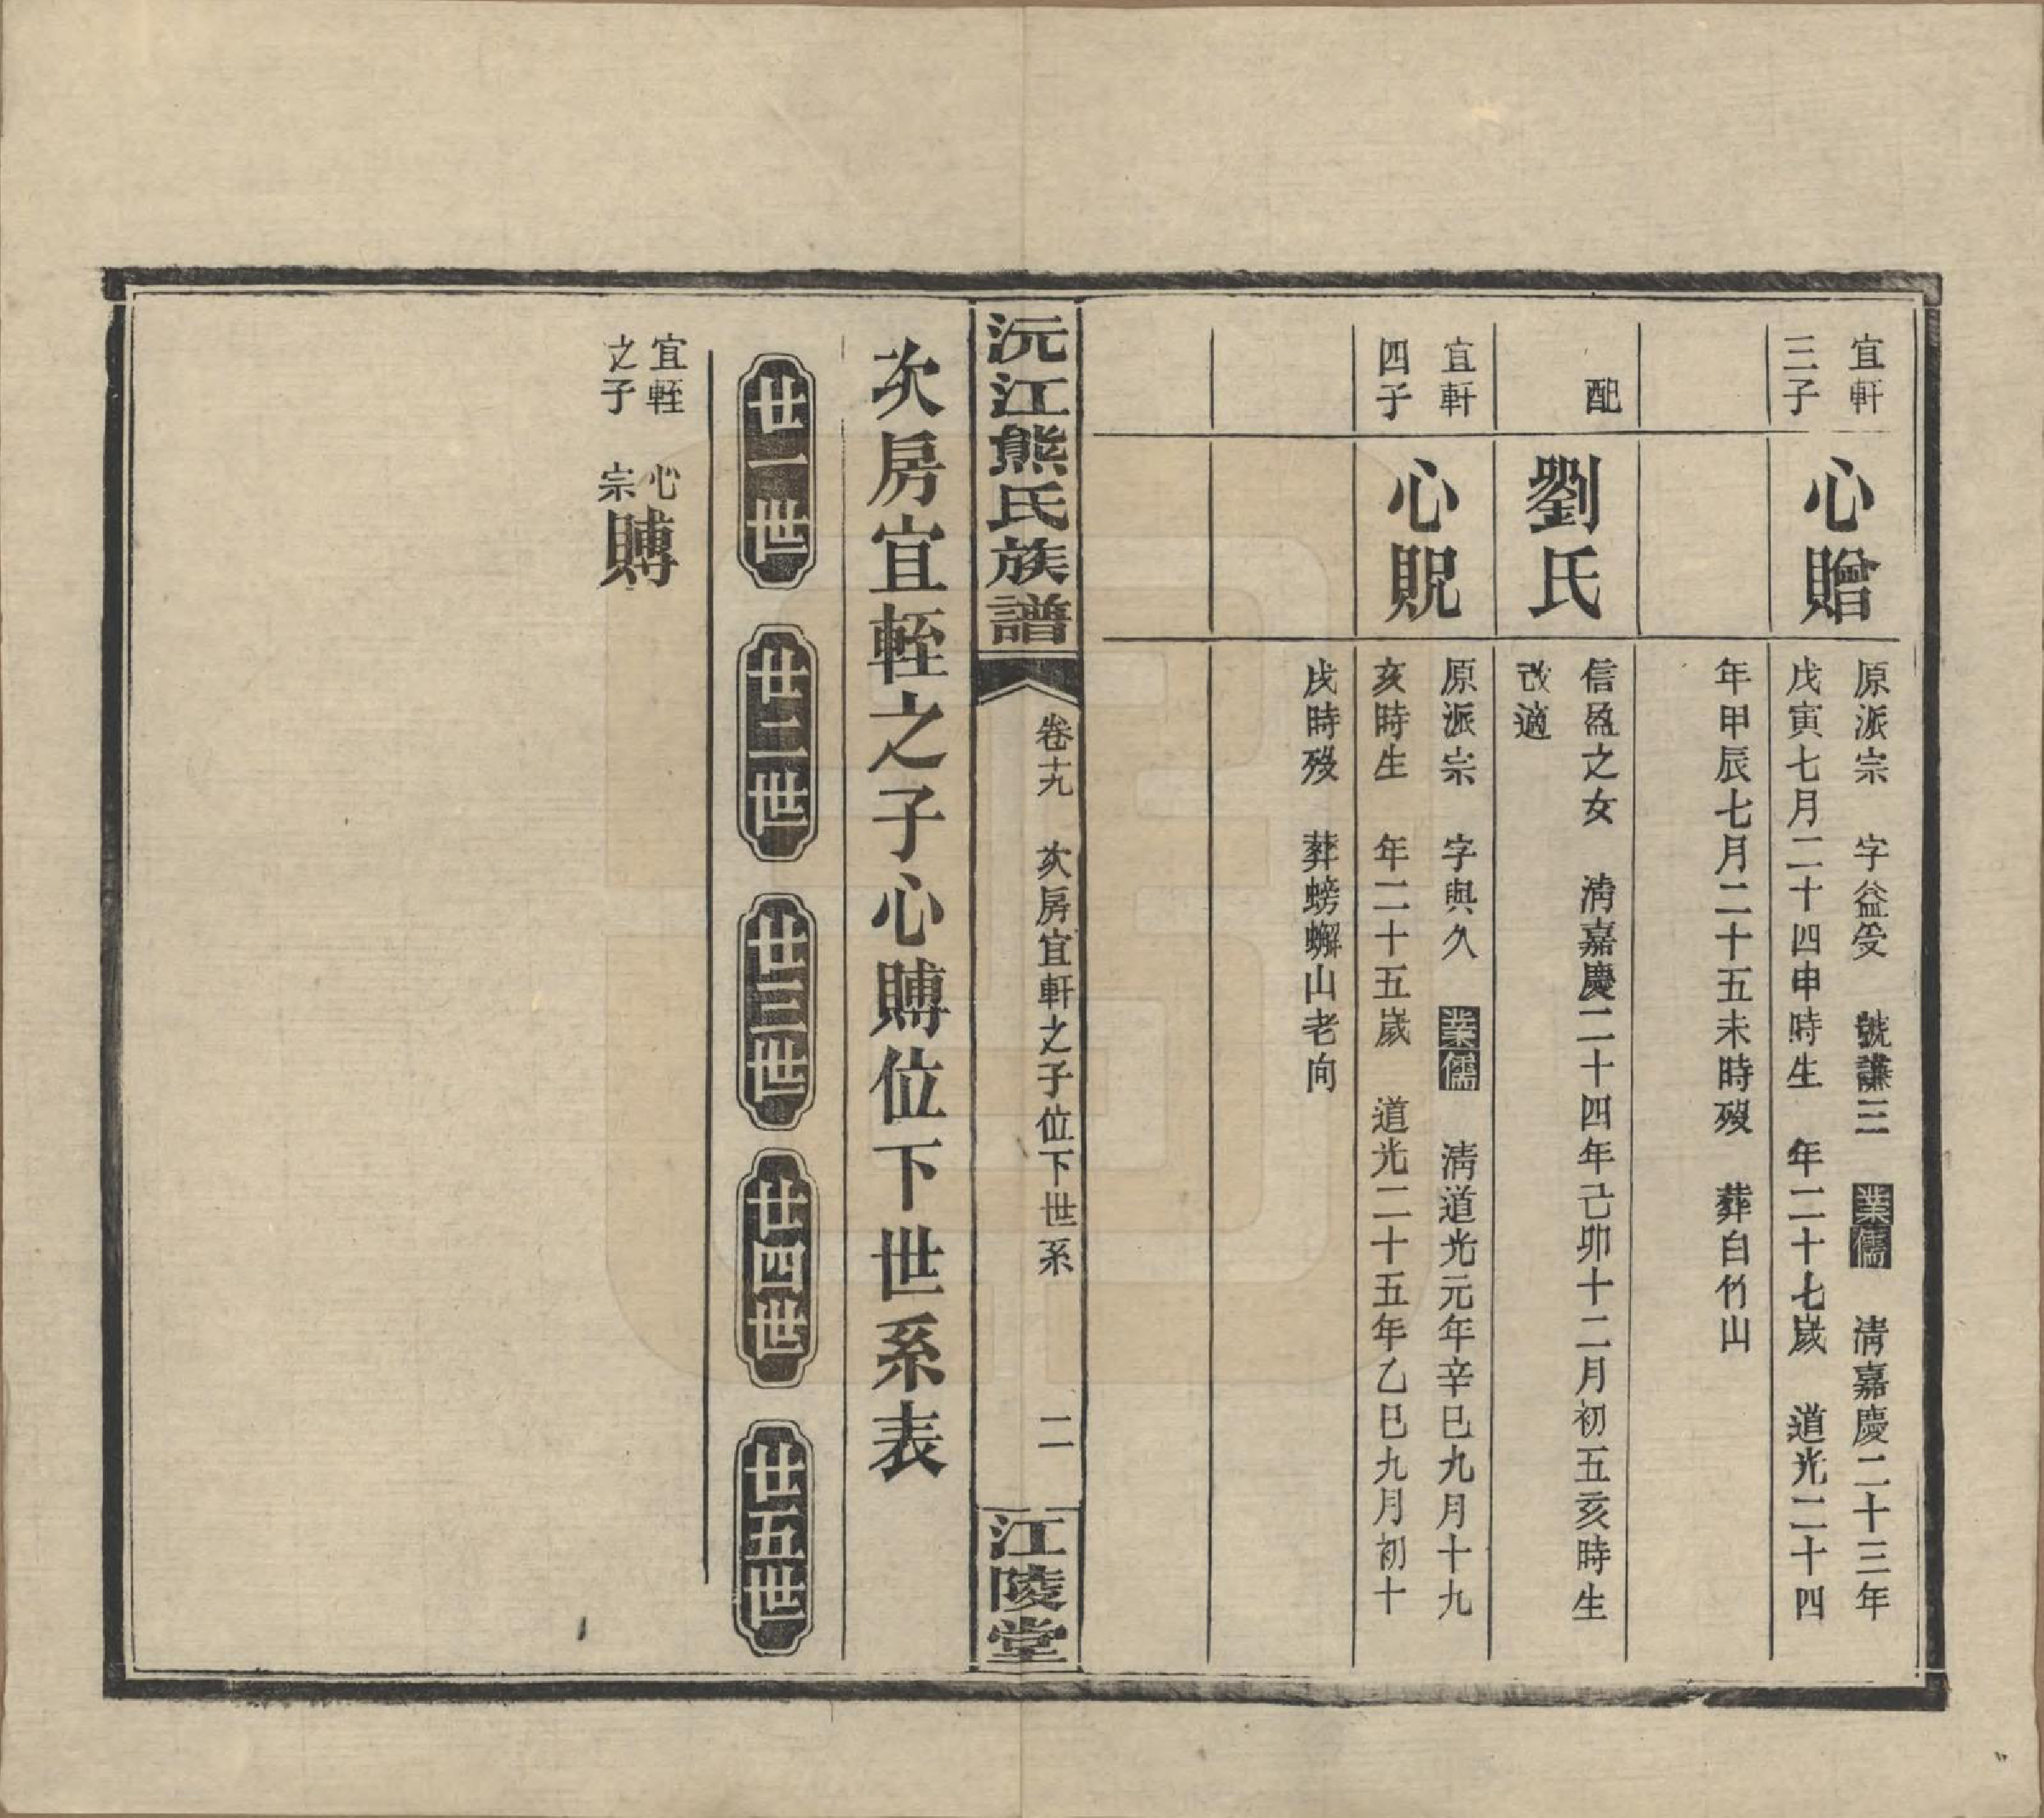 宜軒
三子
心贈
原派宗　字益受　號謙三　業儒　清嘉慶二十三年
戊寅七月二十四申時生　年二十七歲　道光二十四
年甲辰七月二十五未時歿　葬白竹山
配
劉氏
信盈之女　清嘉慶二十四年己卯十二月初五亥時生
改適
宜軒
四子
心貺
原派宗　字與久　業儒　清道光元年辛巳九月十九
亥時生　年二十五歲　道光二十五年乙巳九月初十
戌時歿　葬螃蠏山老向
沅江熊氏族譜
卷十九　次房宜軒之子位下世系　二
江陵堂
次房宜輊之子心賻位下世系表
廿一世　廿二世　廿三世　廿四世　廿五世
宜輊
之子
心
宗
賻